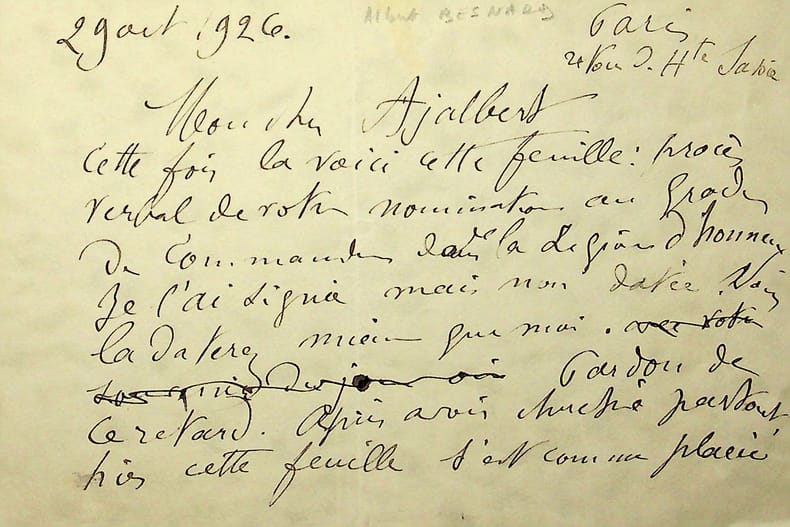 29 aout 1926.
Albert BESNARD
Paris
Hte Savoie
Mon cher Ajalbert
Cette fois la voici cette feuille : procès
verbal de votre nomination au Grade
De Commandeur dans la Légion d'honneur
Je l'ai signée mais non datée. Vous
la daterez mieux que moi. avec votre
Pardon de
ce retard. Après avoir cherché partout
hier cette feuille s'est comme placée